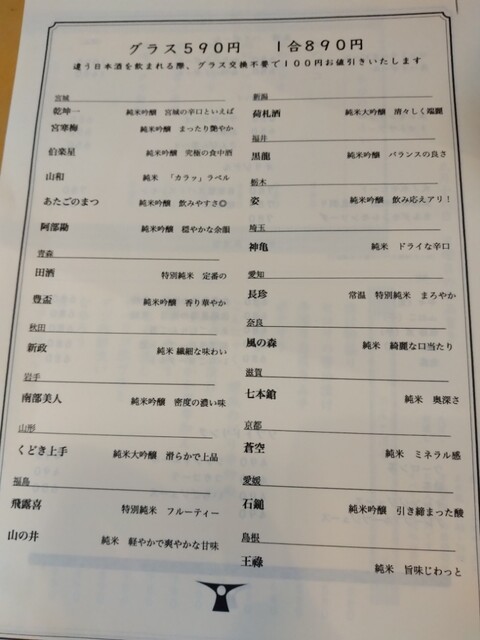 グラス590円　1合890円
違う日本酒を飲まれる際、グラス交換不要で100円お値引きいたします
宮城
乾坤一　純米吟醸　宮城の辛口といえば
宮寒梅　純米吟醸　まったり艶やか
伯楽星　純米吟醸　究極の食中酒
山和　純米　「カラッ」ラベル
あたごのまつ　純米吟醸　飲みやすさ◎
阿部勘　純米吟醸　穏やかな余韻
青森
田酒　特別純米　定番の
豊盃　純米吟醸　香り華やか
秋田
新政　純米 繊細な味わい
岩手
南部美人　純米吟醸　密度の濃い味
山形
くどき上手　純米大吟醸　滑らかで上品
福島
飛露喜　特別純米　フルーティー
山の井　純米　軽やかで爽やかな甘味
新潟
荷札酒　純米大吟醸　清々しく端麗
福井
黒龍　純米吟醸　バランスの良さ
栃木
姿　純米吟醸　飲み応えアリ！
埼玉
神亀　純米　ドライな辛口
愛知
長珍　常温　特別純米　まろやか
奈良
風の森　純米　綺麗な口当たり
滋賀
七本鎗　純米　奥深さ
京都
蒼空　純米　ミネラル感
愛媛
石鎚　純米吟醸　引き締まった酸
島根
王祿　純米　旨味じわっと